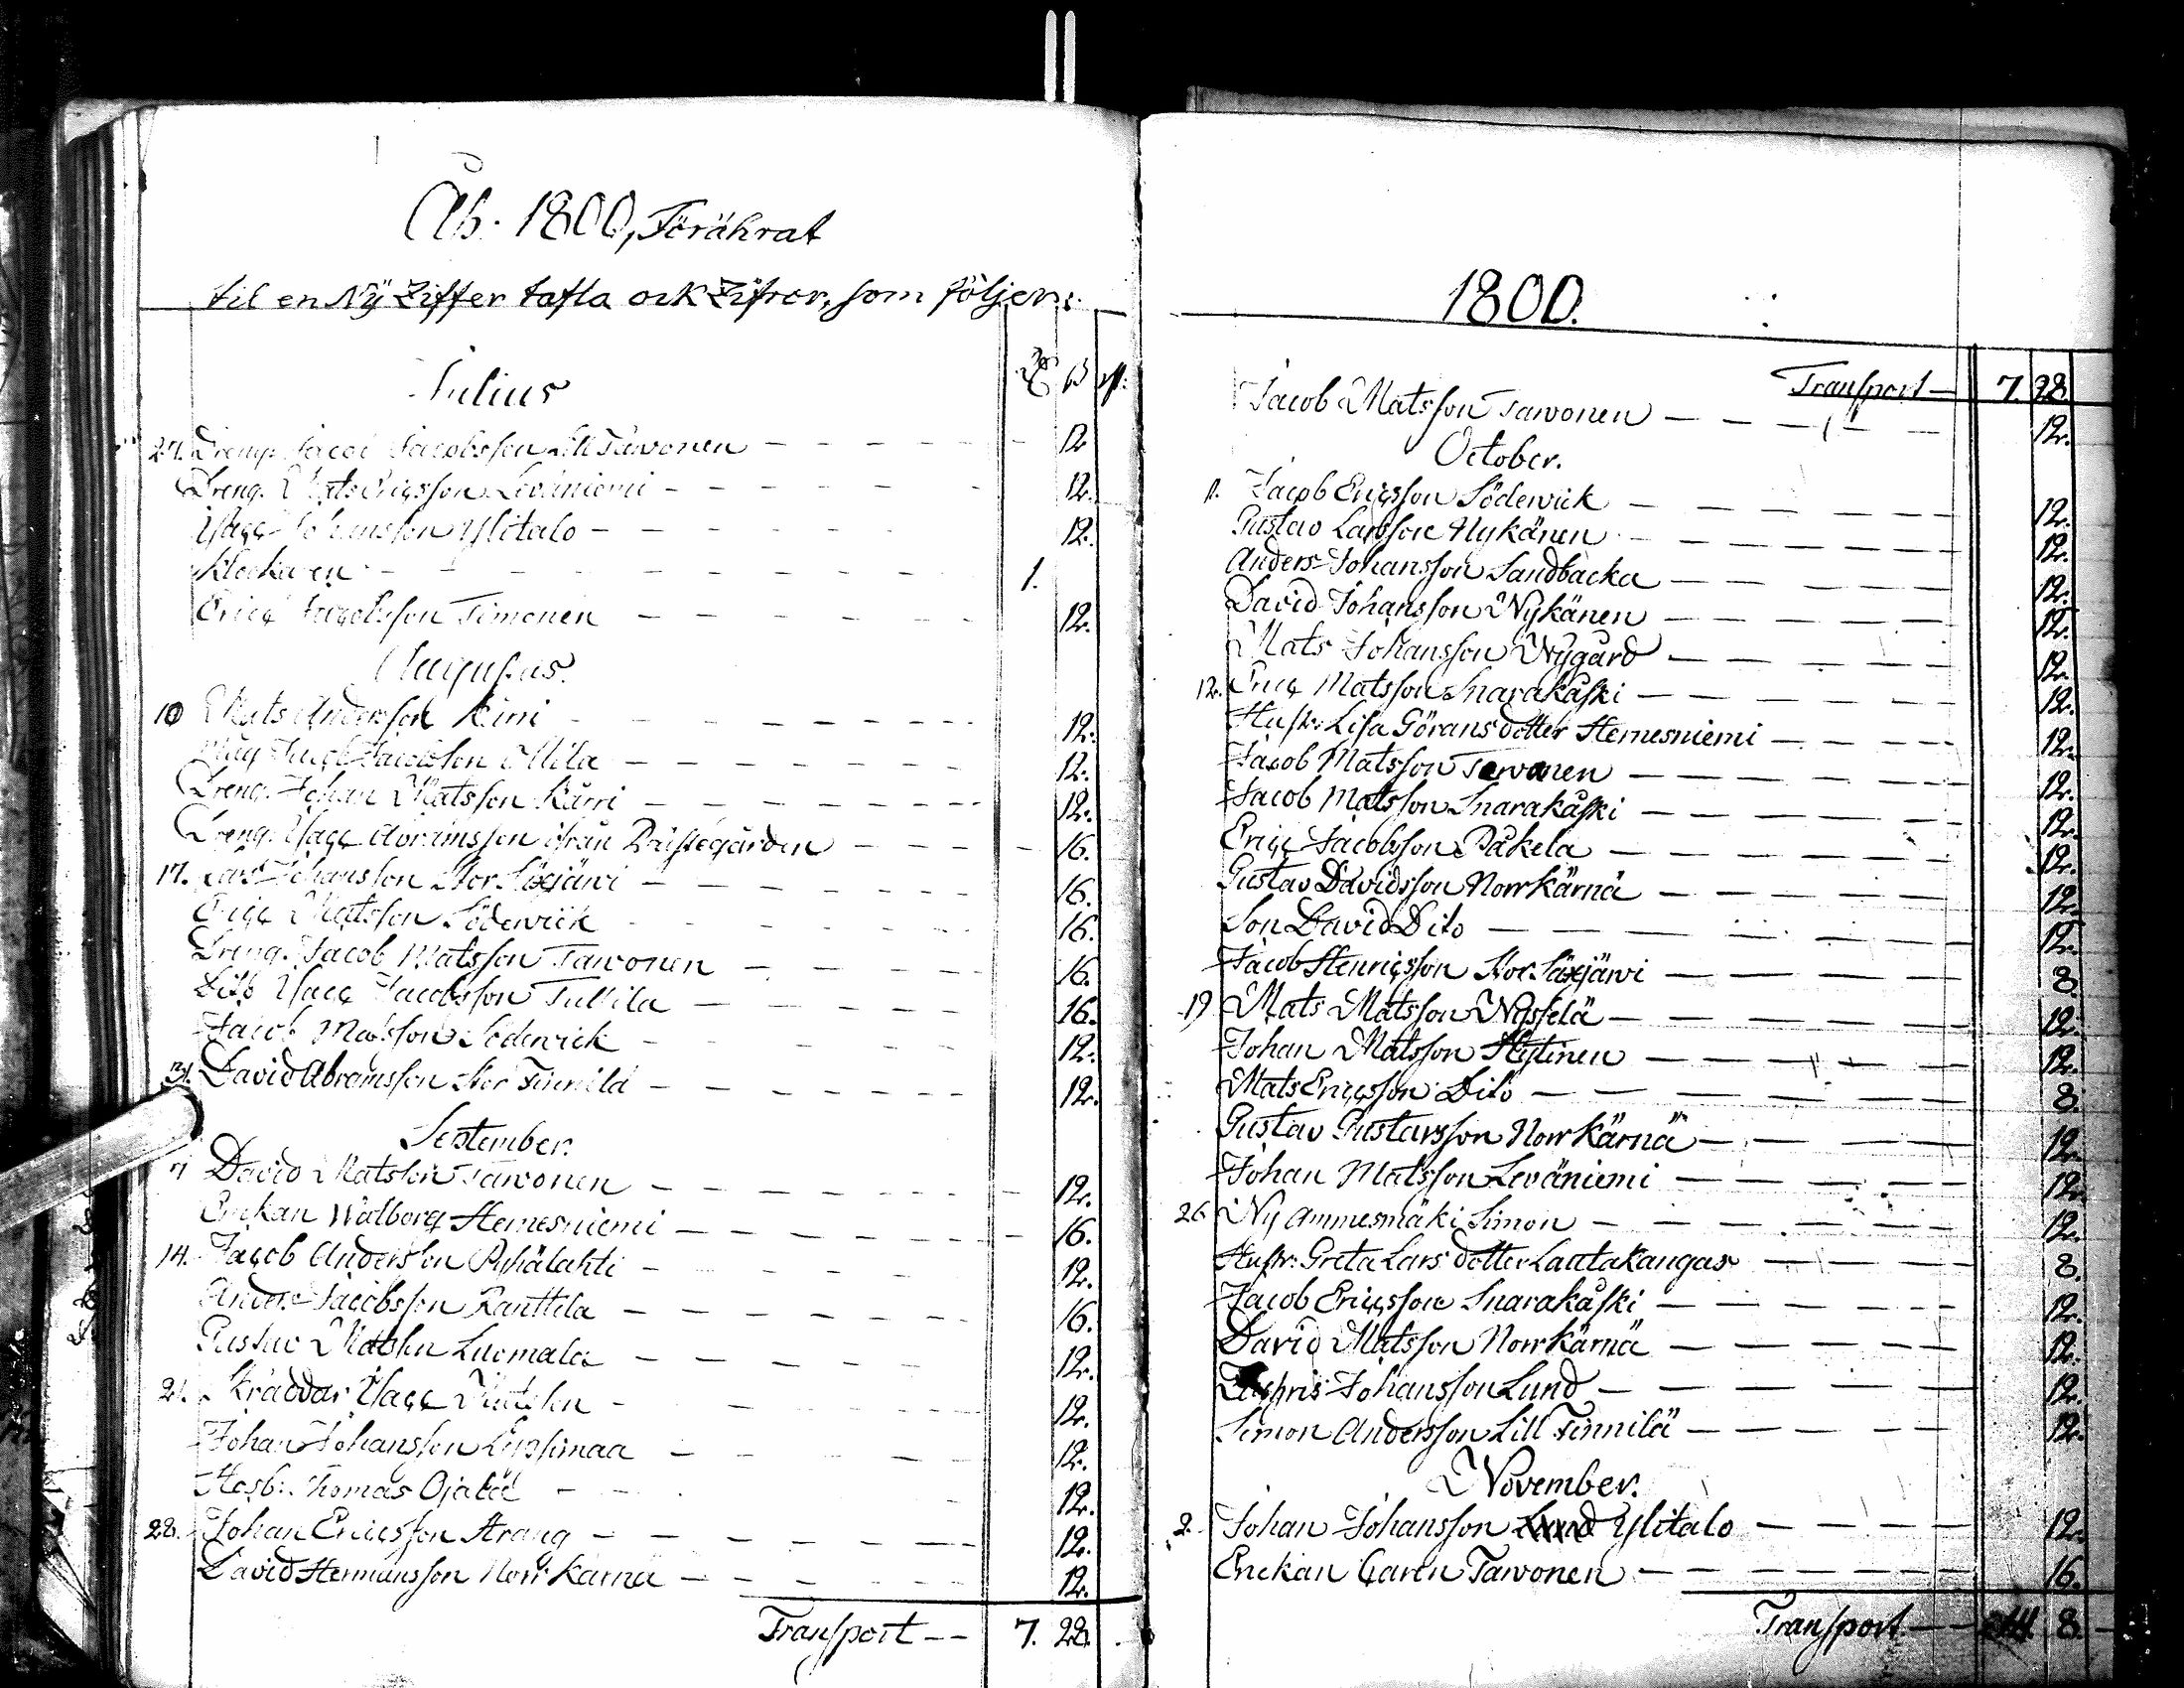 Åh. 1800, Förährat
til en Nÿ Ziffer tafla ock Zifror, som följer:
Julius
24. Dreng. Jacob Jacobsson Lill Tawonen — 12
Dreng. Mats Ericsson Leväniemi — 12.
Isacc Johansson Ylitalo — 12.
Klockaren — 1.
Ericc Jacobsson Timonen — 12.
Augustus.
10 Mats Andersson Kärri — 12.
Jacob Jacobsson — 12.
Dreng. Johan Matsson Kärri — 12.
Dreng. Isacc Abramsson ifrån Prästegården — 16.
17. Lars Johansson Stor Säxjärvi — 16.
Ericc Matsson Söderwick — 16.
Dreng. Jacob Matsson Tawonen — 16.
Dito Isacc Jacobsson Tullila — 16.
Jacob Matsson Söderwick — 12.
31. David Abramsson Stor Finnilä — 12.
September.
7 David Matsson Tawonen — 12.
Enckan Walborg Hernesniemi — 16.
14. Jacob Andersson Pyhälahti — 12.
Anders Jacobsson Ranttila — 16.
Gustav Matsson Luomala — 12.
21. Skräddar Isacc Matsson — 12.
Johan Johansson Lyssimaa — 12.
Hosb: Thomas Ojala — 12.
28. Johan Ericsson Strang — 12.
David Hermansson Norrkärnä — 12.
Transport — 7. 28.
1800.
Transport — 7. 28.
Jacob Matsson Tawonen — 12.
October.
Jacob Ericsson Söderwick — 12.
Gustav Larsson Nykänen — 12.
Anders Johansson Sandbacka — 12.
David Johansson Nykänen — 12.
Mats Johansson Nygård — 12.
12. Ericc Matsson Snarakåski — 12.
Hustr: Lisa Görans dotter Hernesniemi — 12.
Jacob Matsson Tawonen — 12.
Jacob Matsson Snarakåski — 12.
Ericc Jacobsson Påkela — 12.
Gustav Davidsson Norrkärnä — 12.
Son David Dito — 12.
Jacob Henricsson Stor Säxjärvi — 8.
19 Mats Matsson Nysselä — 12.
Johan Matsson Hytinen — 12.
Mats Ericsson Dito — 8.
Gustav Gustavsson Norrkärnä — 12.
Johan Matsson Leväniemi — 12.
26. Ny Ammesmäki Simon — 12.
Hustr: Greta Lars dotter Lautakangas — 8.
Jacob Ericsson Snarakåski — 12.
David Matsson Norrkärnä — 12.
Zachris Johansson Lund — 12.
Simon Andersson Lill Finnilä — 12.
November.
2. Johan Johansson Lund Ylitalo — 12.
Enckan Caren Tawonen — 16.
Transport — 8.